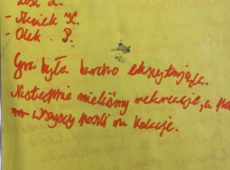 - Maciek K.
- Olek P.
Gra była bardzo ekscytująca.
Następnie mieliśmy rekreację, a
wszyscy poszli na kolację.